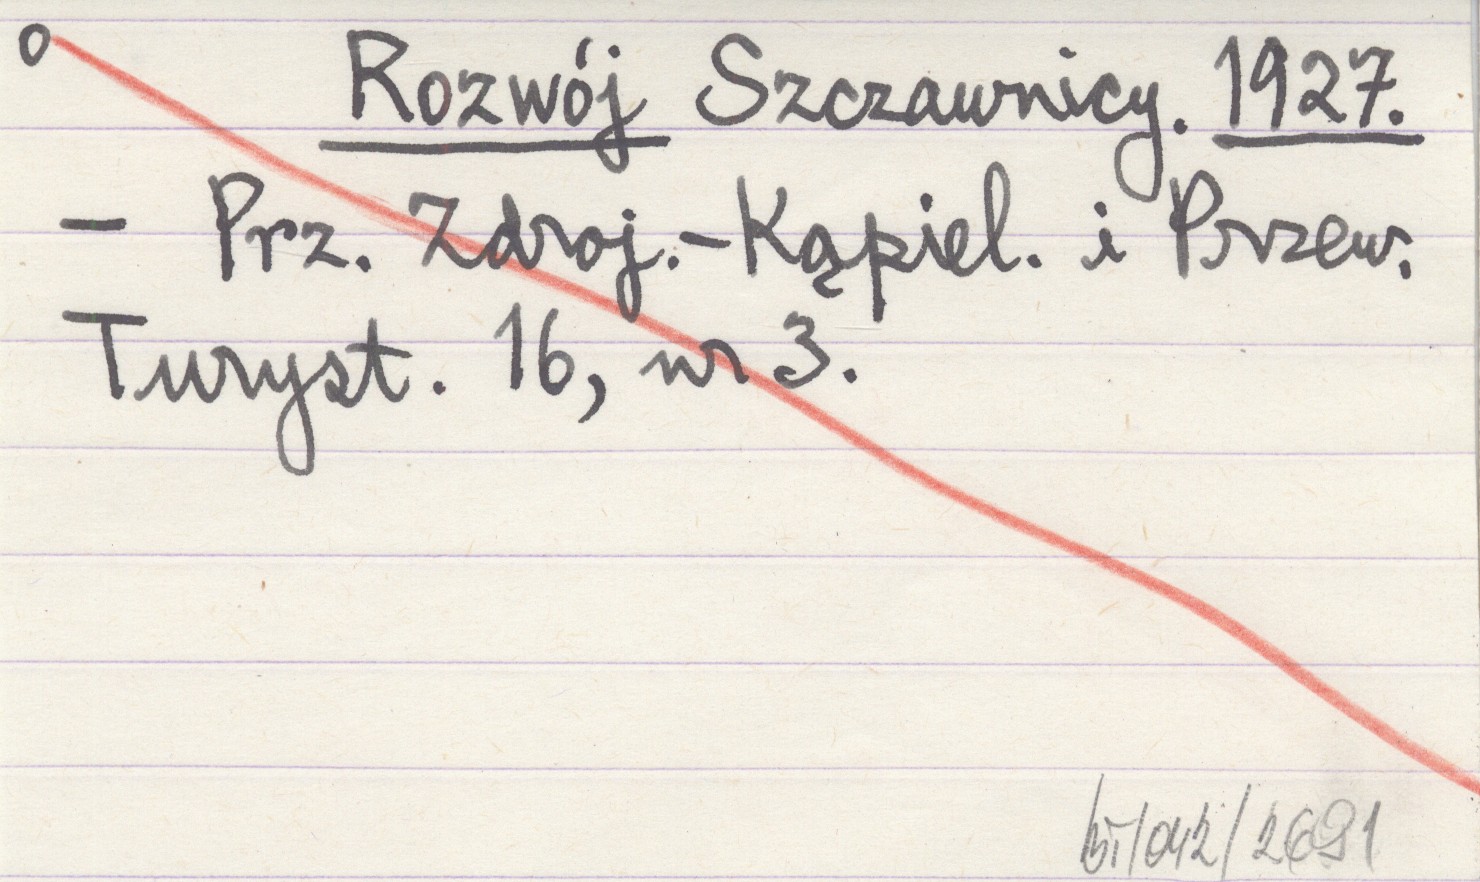 o Rozwój Szczawnicy. 1927.
– Prz. Zdroj.-Kąpiel. i Przew.
Turyst. 16, nr 3.
/042/2691